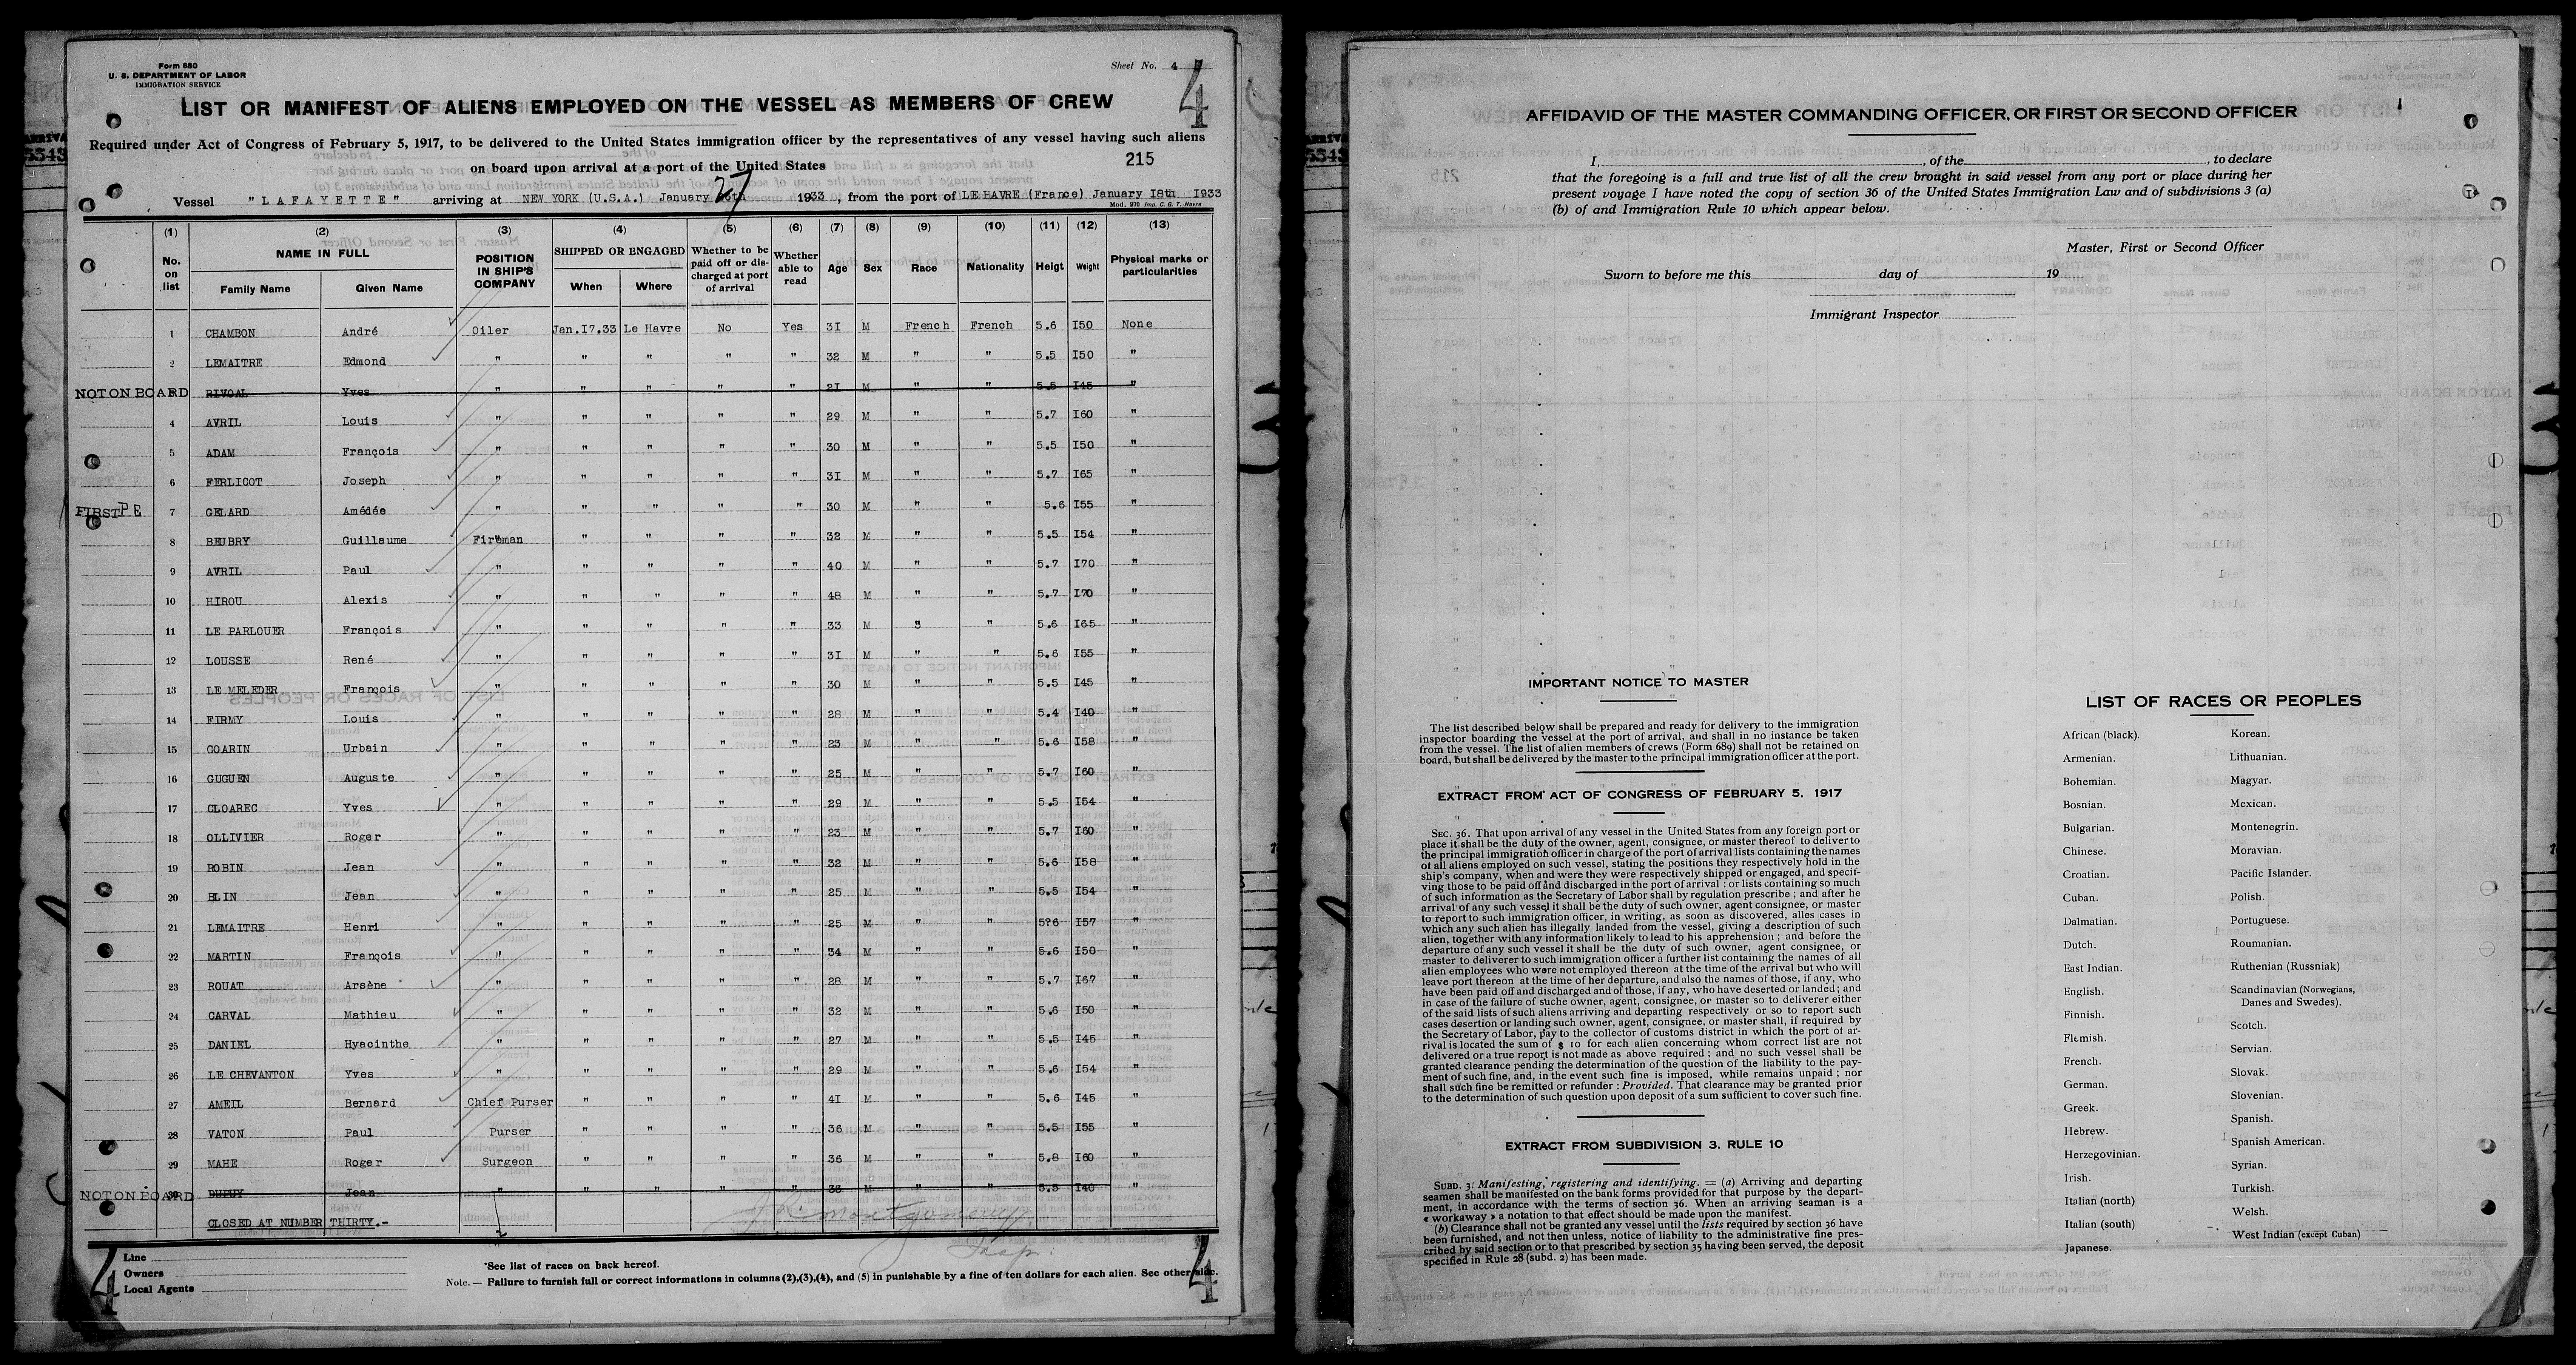 Form 680
U. S. DEPARTMENT OF LABOR
IMMIGRATION SERVICE
Sheet No. 4
4
LIST OR MANIFEST OF ALIENS EMPLOYED ON THE VESSEL AS MEMBERS OF CREW
Required under Act of Congress of February 5, 1917, to be delivered to the United States immigration officer by the representatives of any vessel having such aliens
on board upon arrival at a port of the United States
215
Vessel "LAFAYETTE" arriving at NEW YORK (U.S.A.) January 27 1933, from the port of LE HAVRE (France) January I8th I933
Mod. 970 Imp. C. G. T. Havre
(1) (2) (3) (4) (5) (6) (7) (8) (9) (10) (11) (12) (13)
No. on list NAME IN FULL Family Name Given Name POSITION IN SHIP'S COMPANY SHIPPED OR ENGAGED When Where Whether to be paid off or discharged at port of arrival Whether able to read Age Sex Race Nationality Helgt Weight Physical marks or particularities
1 CHAMBON André Oiler Jan.I7.33 Le Havre No Yes 3I M French French 5.6 I50 None
2 LEMAITRE Edmond " " " " " 32 M " " 5.5 I50 "
NOT ON BOARD RIVOAL Yves " " " " " 2I M " " 5.5 I45 "
4 AVRIL Louis " " " " " 29 M " " 5.7 I60 "
5 ADAM François " " " " " 30 M " " 5.5 I50 "
6 FERLICOT Joseph " " " " " 3I M " " 5.7 I65 "
FIRST P E 7 GELARD Amédée " " " " " 30 M " " 5.6 I55 "
8 BEUBRY Guillaume Fireman " " " " 32 M " " 5.5 I54 "
9 AVRIL Paul " " " " " 40 M " " 5.7 I70 "
10 HIROU Alexis " " " " " 48 M " " 5.7 I70 "
11 LE PARLOUER François " " " " " 33 M 3 " 5.6 I65 "
12 LOUSSE René " " " " " 3I M " " 5.6 I55 "
13 LE MELEDER François " " " " " 30 M " " 5.5 I45 "
14 FIRMY Louis " " " " " 28 M " " 5.4 I40 "
15 GOARIN Urbain " " " " " 23 M " " 5.6 I58 "
16 GUGUEN Auguste " " " " " 25 M " " 5.7 I60 "
17 CLOAREC Yves " " " " " 29 M " " 5.5 I54 "
18 OLLIVIER Roger " " " " " 23 M " " 5.7 I60 "
19 ROBIN Jean " " " " " 32 M " " 5.6 I58 "
20 BLIN Jean " " " " " 25 M " " 5.5 I54 "
21 LEMAITRE Henri " " " " " 25 M " " 5?6 I57 "
22 MARTIN François " " " " " 34 M " " 5.6 I50 "
23 ROUAT Arsène " " " " " 28 M " " 5.7 I67 "
24 CARVAL Mathieu " " " " " 32 M " " 5.6 I50 "
25 DANIEL Hyacinthe " " " " " 27 M " " 5.5 I45 "
26 LE CHEVANTON Yves " " " " " 29 M " " 5.6 I54 "
27 AMEIL Bernard Chief Purser " " " " 4I M " " 5.6 I45 "
28 VATON Paul Purser " " " " 36 M " " 5.5 I55 "
29 MAHE Roger Surgeon " " " " 36 M " " 5.8 I60 "
NOT ON BOARD 30 DUPUY Jean " " " " " 33 M " " 5.5 I40 "
CLOSED AT NUMBER THIRTY.-
Montgomery
Insp.
Line
Owners
Local Agents
*See list of races on back hereof.
Note. — Failure to furnish full or correct informations in columns (2),(3),(4), and (5) in punishable by a fine of ten dollars for each alien. See other side.
4
4
AFFIDAVID OF THE MASTER COMMANDING OFFICER, OR FIRST OR SECOND OFFICER
I, , of the , to declare
that the foregoing is a full and true list of all the crew brought in said vessel from any port or place during her
present voyage I have noted the copy of section 36 of the United States Immigration Law and of subdivisions 3 (a)
(b) of and Immigration Rule 10 which appear below.
Master, First or Second Officer
Sworn to before me this day of 19
Immigrant Inspector
IMPORTANT NOTICE TO MASTER
The list described below shall be prepared and ready for delivery to the immigration
inspector boarding the vessel at the port of arrival, and shall in no instance be taken
from the vessel. The list of alien members of crews (Form 689) shall not be retained on
board, but shall be delivered by the master to the principal immigration officer at the port.
EXTRACT FROM ACT OF CONGRESS OF FEBRUARY 5, 1917
SEC. 36. That upon arrival of any vessel in the United States from any foreign port or
place it shall be the duty of the owner, agent, consignee, or master thereof to deliver to
the principal immigration officer in charge of the port of arrival lists containing the names
of all aliens employed on such vessel, stating the positions they respectively hold in the
ship's company, when and were they were respectively shipped or engaged, and specif-
ving those to be paid off and discharged in the port of arrival : or lists containing so much
of such information as the Secretary of Labor shall by regulation prescribe ; and after he
arrival of any such vessel it shall be the duty of such owner, agent consignee, or master
to report to such immigration officer, in writing, as soon as discovered, alles cases in
which any such alien has illegally landed from the vessel, giving a description of such
alien, together with any information likely to lead to his apprehension ; and before the
departure of any such vessel it shall be the duty of such owner, agent consignee, or
master to deliverer to such immigration officer a further list containing the names of all
alien employees who were not employed thereon at the time of the arrival but who will
leave port thereon at the time of her departure, and also the names of those, if any, who
have been paid off and discharged and of those, if any, who have deserted or landed ; and
in case of the failure of suche owner, agent, consignee, or master so to deliverer either
of the said lists of such aliens arriving and departing respectively or so to report such
cases desertion or landing such owner, agent, consignee, or master shall, if required by
the Secretary of Labor, pay to the collector of customs district in which the port of ar-
rival is located the sum of $ 10 for each alien concerning whom correct list are not
delivered or a true report is not made as above required ; and no such vessel shall be
granted clearance pending the determination of the question of the liability to the pay-
ment of such fine, and, in the event such fine is imposed, while remains unpaid ; nor
shall such fine be remitted or refunder : Provided. That clearance may be granted prior
to the determination of such question upon deposit of a sum sufficient to cover such fine.
EXTRACT FROM SUBDIVISION 3, RULE 10
SUBD. 3: Manifesting, registering and identifying. = (a) Arriving and departing
seamen shall be manifested on the bank forms provided for that purpose by the depart-
ment, in accordance with the terms of section 36. When an arriving seaman is a
« workaway » a notation to that effect should be made upon the manifest.
(b) Clearance shall not be granted any vessel until the lists required by section 36 have
been furnished, and not then unless, notice of liability to the administrative fine pres-
cribed by said section or to that prescribed by section 35 having been served, the deposit
specified in Rule 28 (subd. 2) has been made.
LIST OF RACES OR PEOPLES
African (black).
Armenian.
Bohemian.
Bosnian.
Bulgarian.
Chinese.
Croatian.
Cuban.
Dalmatian.
Dutch.
East Indian.
English.
Finnish.
Flemish.
French.
German.
Greek.
Hebrew.
Herzegovinian.
Irish.
Italian (north)
Italian (south)
Japanese.
Korean.
Lithuanian.
Magyar.
Mexican.
Montenegrin.
Moravian.
Pacific Islander.
Polish.
Portuguese.
Roumanian.
Ruthenian (Russniak)
Scandinavian (Norwegians,
Danes and Swedes).
Scotch.
Servian.
Slovak.
Slovenian.
Spanish.
Spanish American.
Syrian.
Turkish.
Welsh.
West Indian (except Cuban)